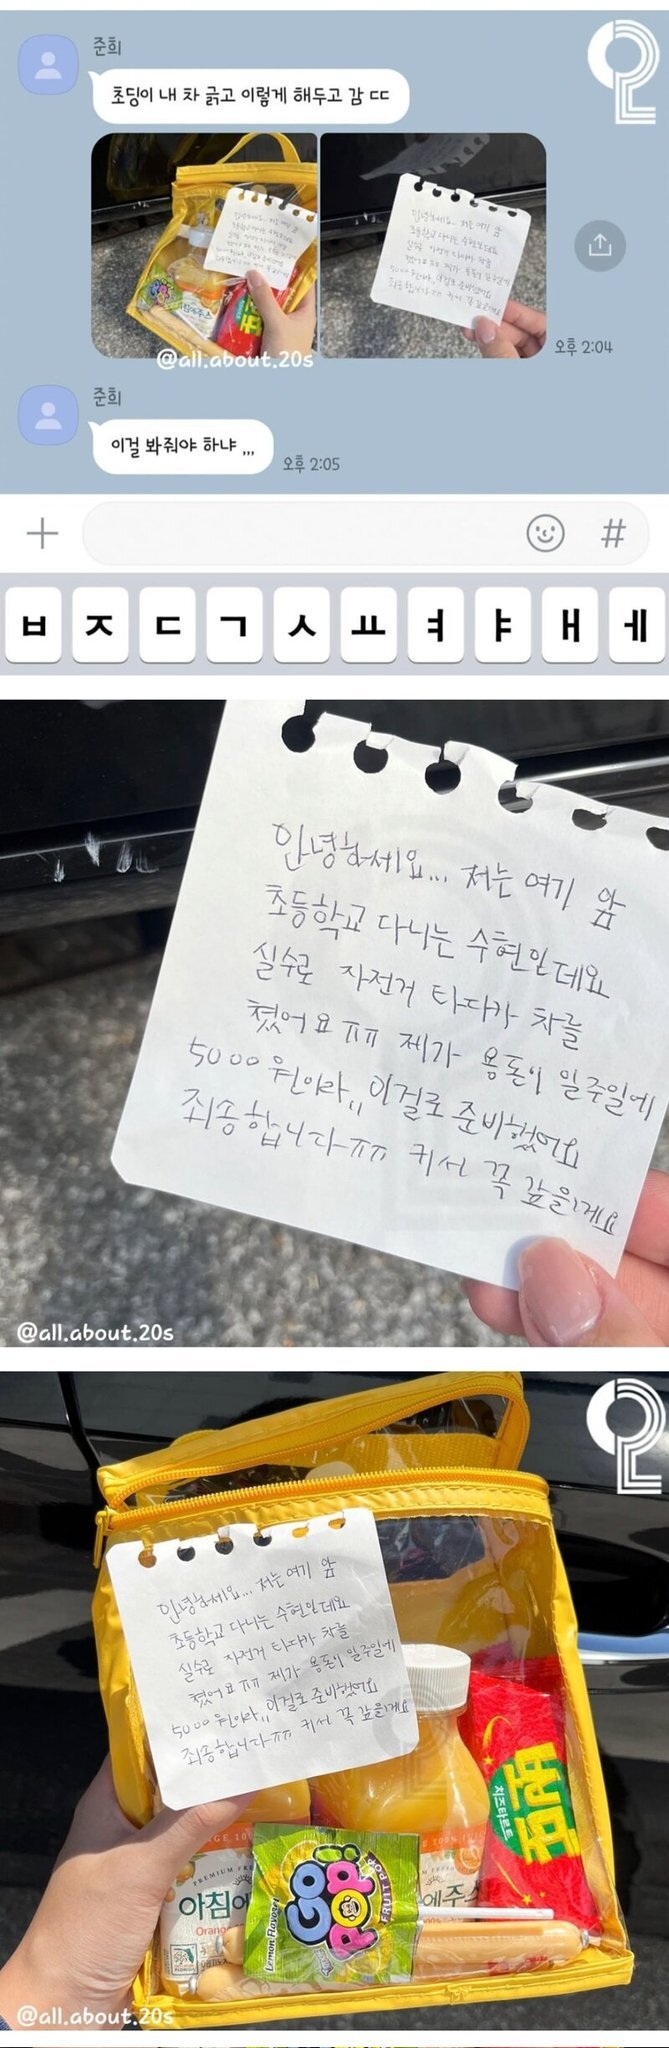 준희
초딩이 내 차 긁고 이렇게 해두고 감 ㄷㄷ
@all.about.20s
오후 2:04
준희
이걸 봐줘야 하냐 ,,,
오후 2:05
+
#
ㅂ ㅈ ㄷ ㄱ ㅅ ㅛ ㅕ ㅑ ㅐ ㅔ
안녕하세요... 저는 여기 앞
초등학교 다니는 수현인데요
실수로 자전거 타다가 차를
쳤어요 ㅠㅠ 제가 용돈이 일주일에
5000원이라,, 이걸로 준비했어요
죄송합니다ㅠㅠ 커서 꼭 갚을게요
@all.about.20s
안녕하세요... 저는 여기 앞
초등학교 다니는 수현인데요
실수로 자전거 타다가 차를
쳤어요 ㅠㅠ 제가 용돈이 일주일에
5000원이라,, 이걸로 준비했어요
죄송합니다ㅠㅠ 커서 꼭 갚을게요
치즈타르트
PREMIUM
아침에
Orang
에주스
GO!
POP!
FRUIT POP
Lemon Flavored
@all.about.20s